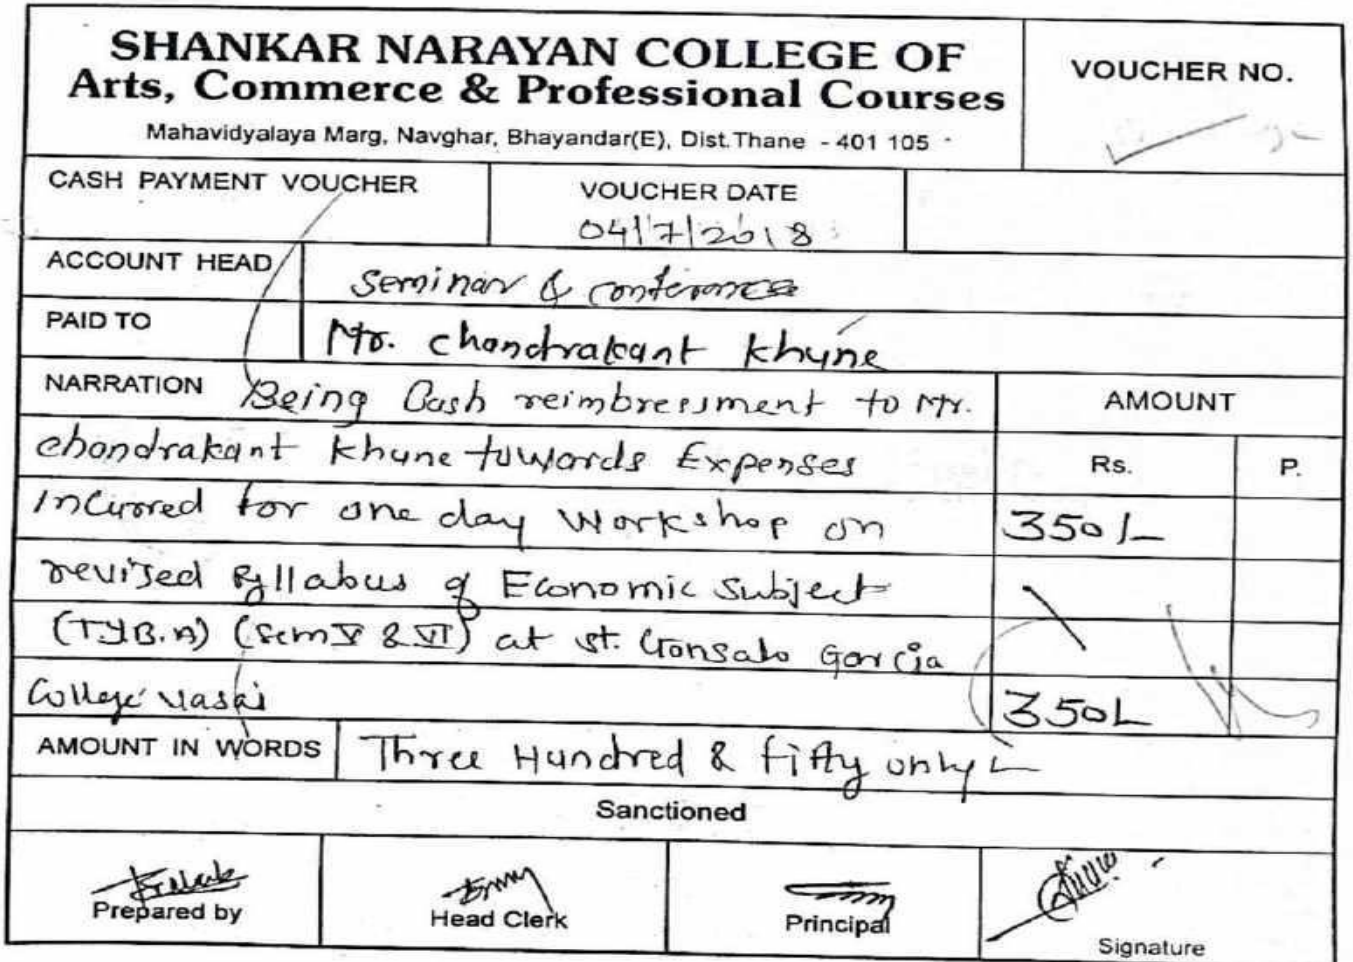 SHANKAR NARAYAN COLLEGE OF
Arts, Commerce & Professional Courses
Mahavidyalaya Marg, Navghar, Bhayandar(E), Dist.Thane - 401 105
VOUCHER NO.
CASH PAYMENT VOUCHER
VOUCHER DATE
04/7/2018
ACCOUNT HEAD
Seminar & conference
PAID TO
Mr. chandrakant Khune
NARRATION Being Cash reimbressment to Mr.
AMOUNT
chandrakant Khune towards Expenses
Rs. P.
Incurred for one day Workshop on
350/-
revised Syllabus of Economic Subject
(T.Y.B.A) (Sem V & VI) at st. Gonsalo Garcia
College Vasai
350/-
AMOUNT IN WORDS Three Hundred & fifty only/-
Sanctioned
Prepared by
Head Clerk
Principal
Signature